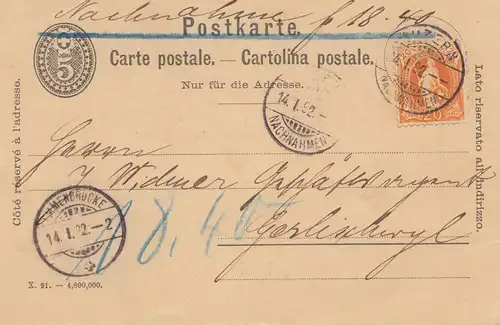 Nachnahme f 18.40
Postkarte.
Carte postale. — Cartolina postale.
Nur für die Adresse.
5
LUZERN
NACHNAHMEN
14.I.92.-
NACHNAHMEN
Côté réservé à l'adresse.
Lato riservato all'indirizzo.
Herrn
J. Widmer Geschäftsagent
Gerliswyl
18.40
EMMENBRÜCKE
14.I.92.-2
X. 91. — 4,800,000.